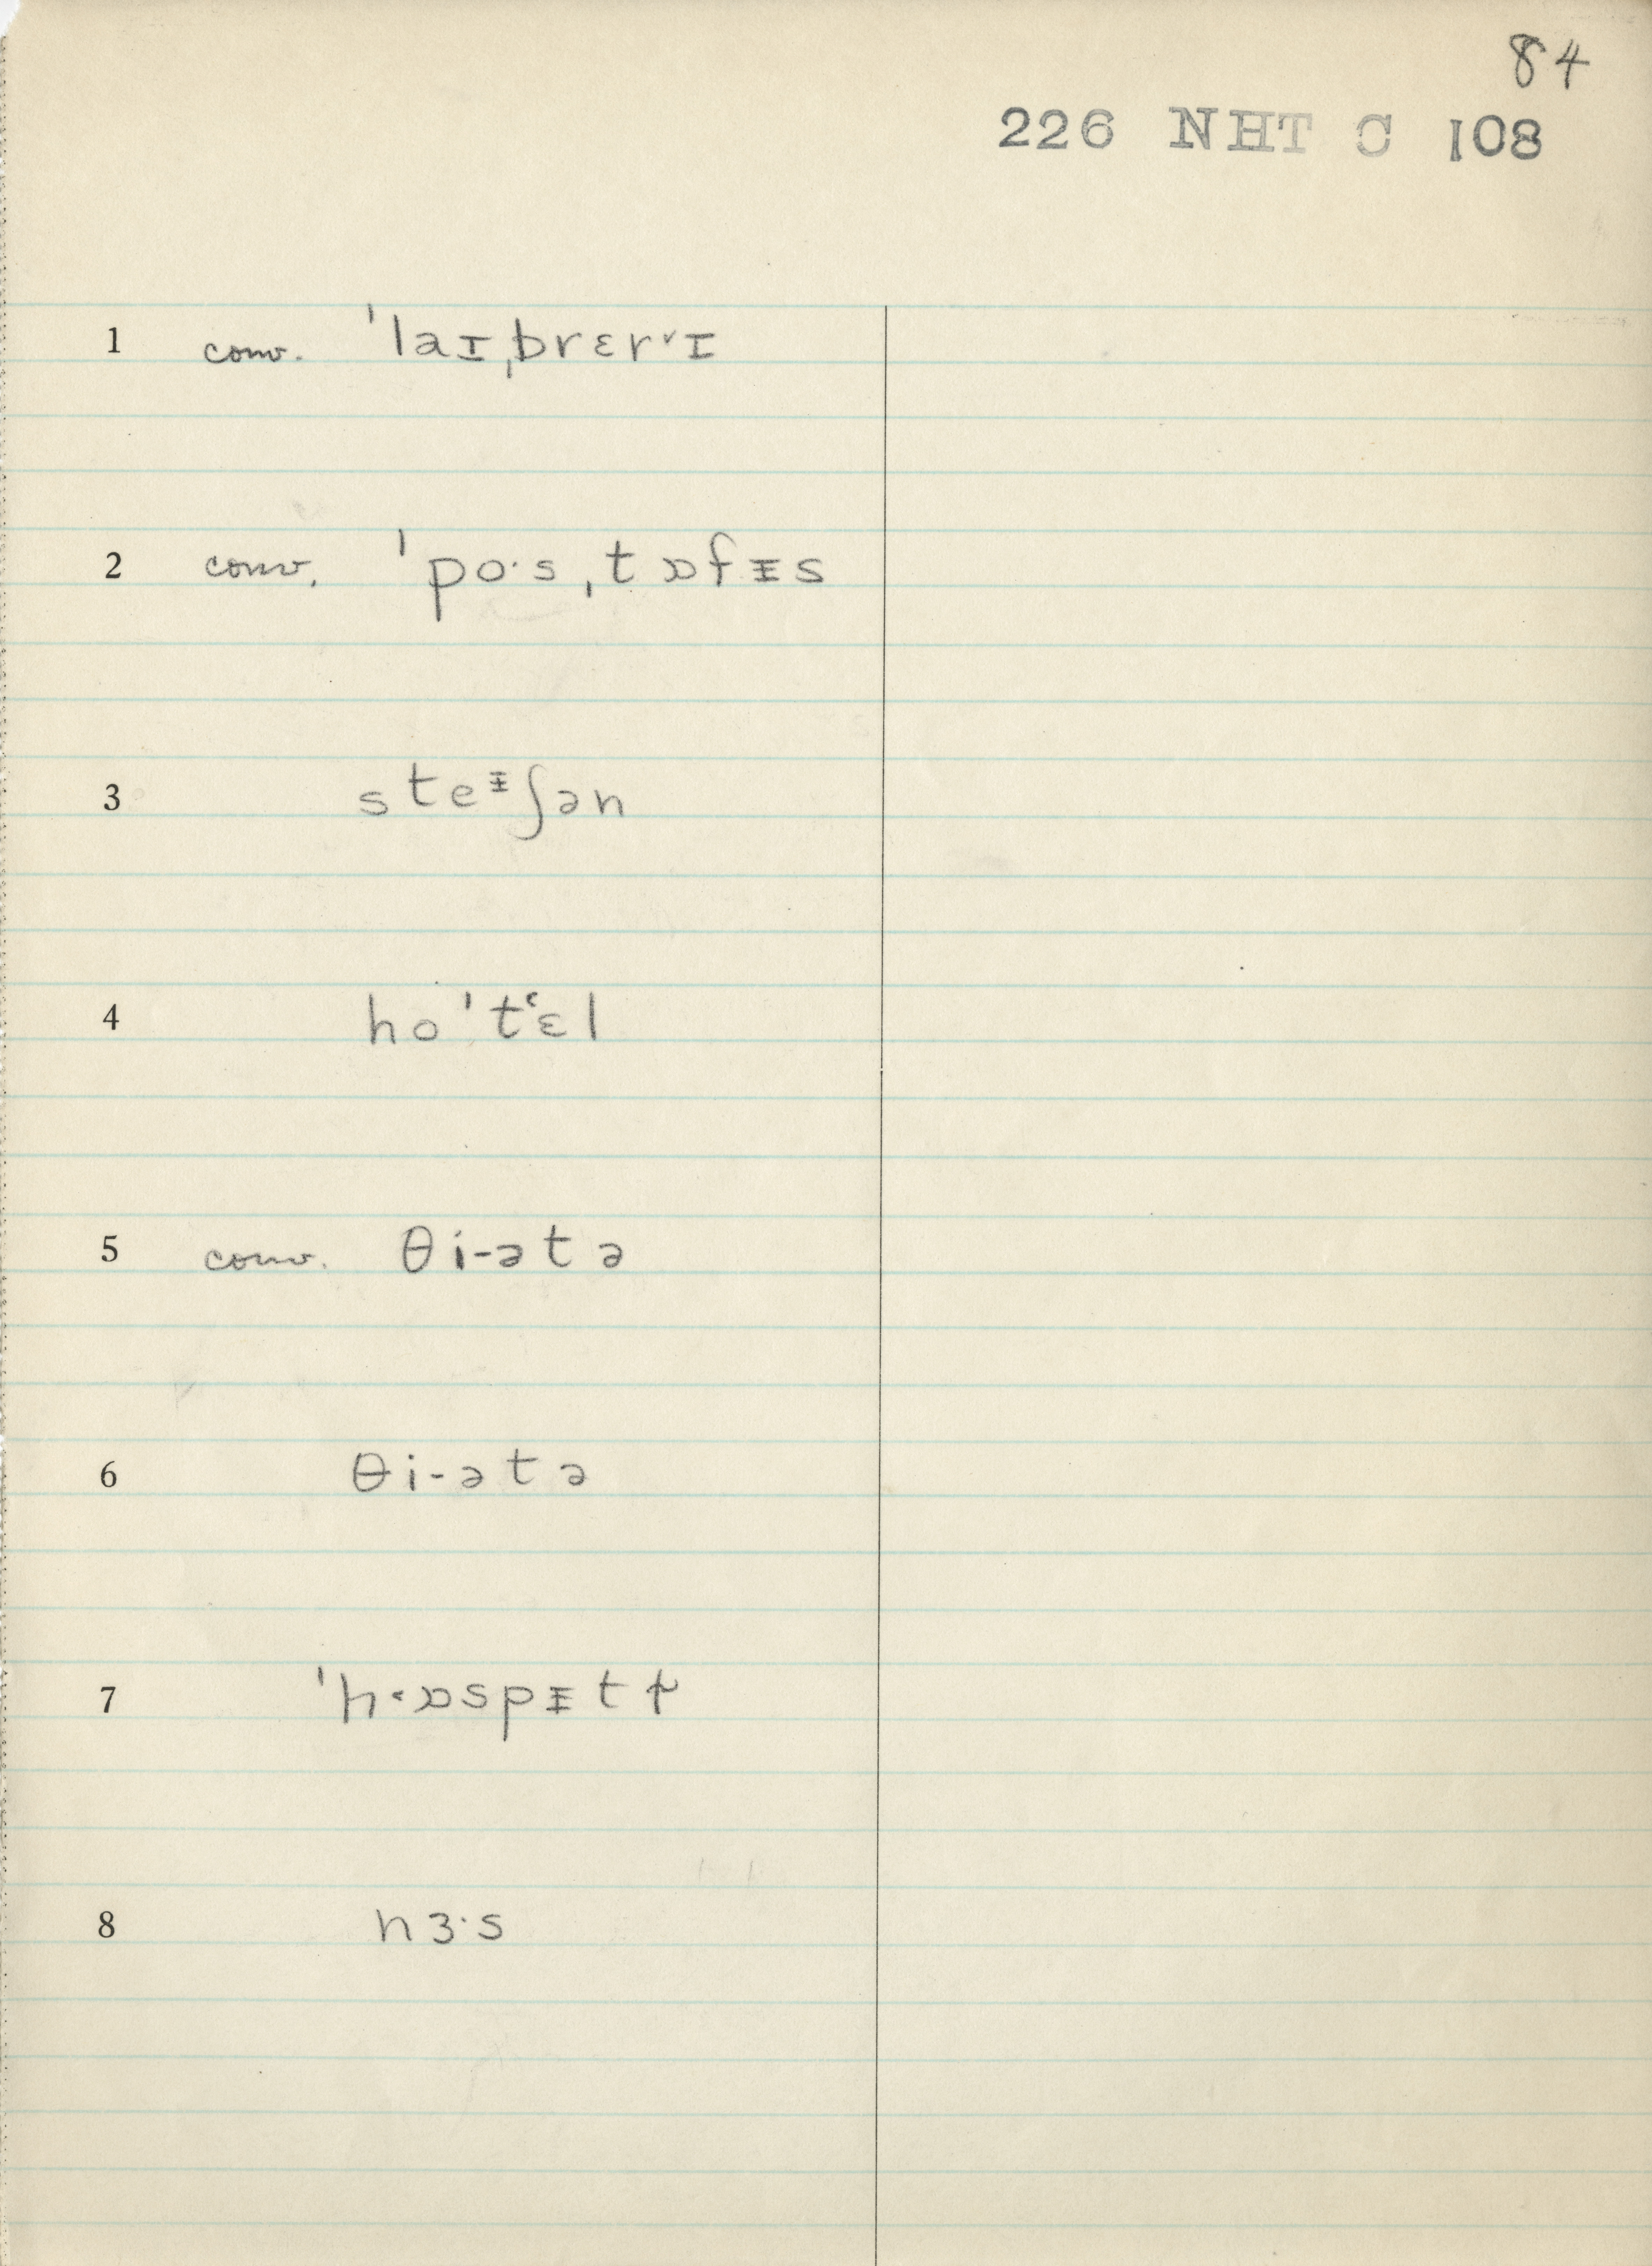 84
226 NHT C 108
1 conv. ˈlaɪˌbrɛrᵛɪ
2 conv. ˈpoˑsˌtɒfᵻs
3 steᵻʃən
4 hoˈtʻɛl
5 conv. θi-ətə
6 θi-ətə
7 ˈh˂ɒspᵻtɫ
8 nɜˑs